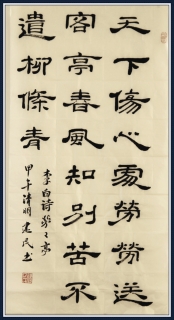 天下傷心處勞勞送
客亭春風知別苦不
遣柳條青
李白詩勞々亭
甲午清明 民书